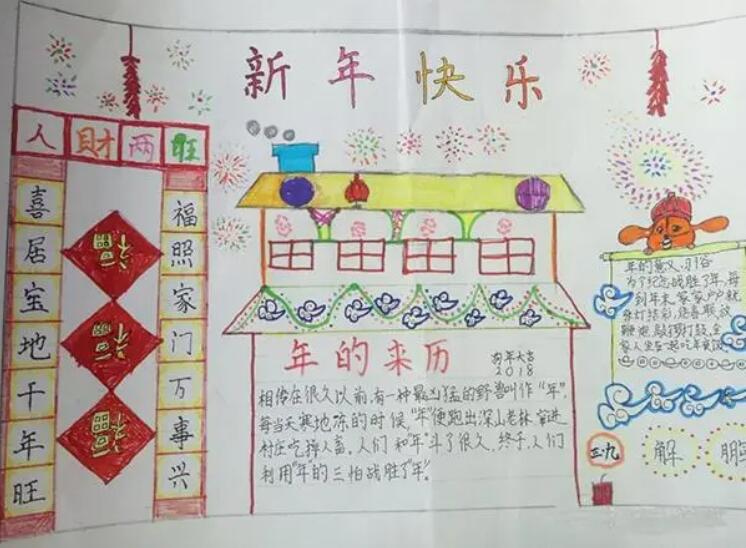 新年快乐
人财两旺
喜居宝地千年旺
福照家门万事兴
福
福
福
年的来历
狗年大吉
2018
相传在很久以前,有一种最凶猛的野兽叫作“年”,
每当天寒地冻的时候,“年”便跑出深山老林,窜进
村庄吃掉人畜,人们和“年”斗了很久,终于,人们
利用“年”的三怕战胜了“年”。
年的意义、习俗
为了纪念战胜了年,每
到年末,家家户户就
张灯结彩,烧香敬放
鞭炮,敲锣打鼓,全
家人坐在一起吃年夜饭
三九
解